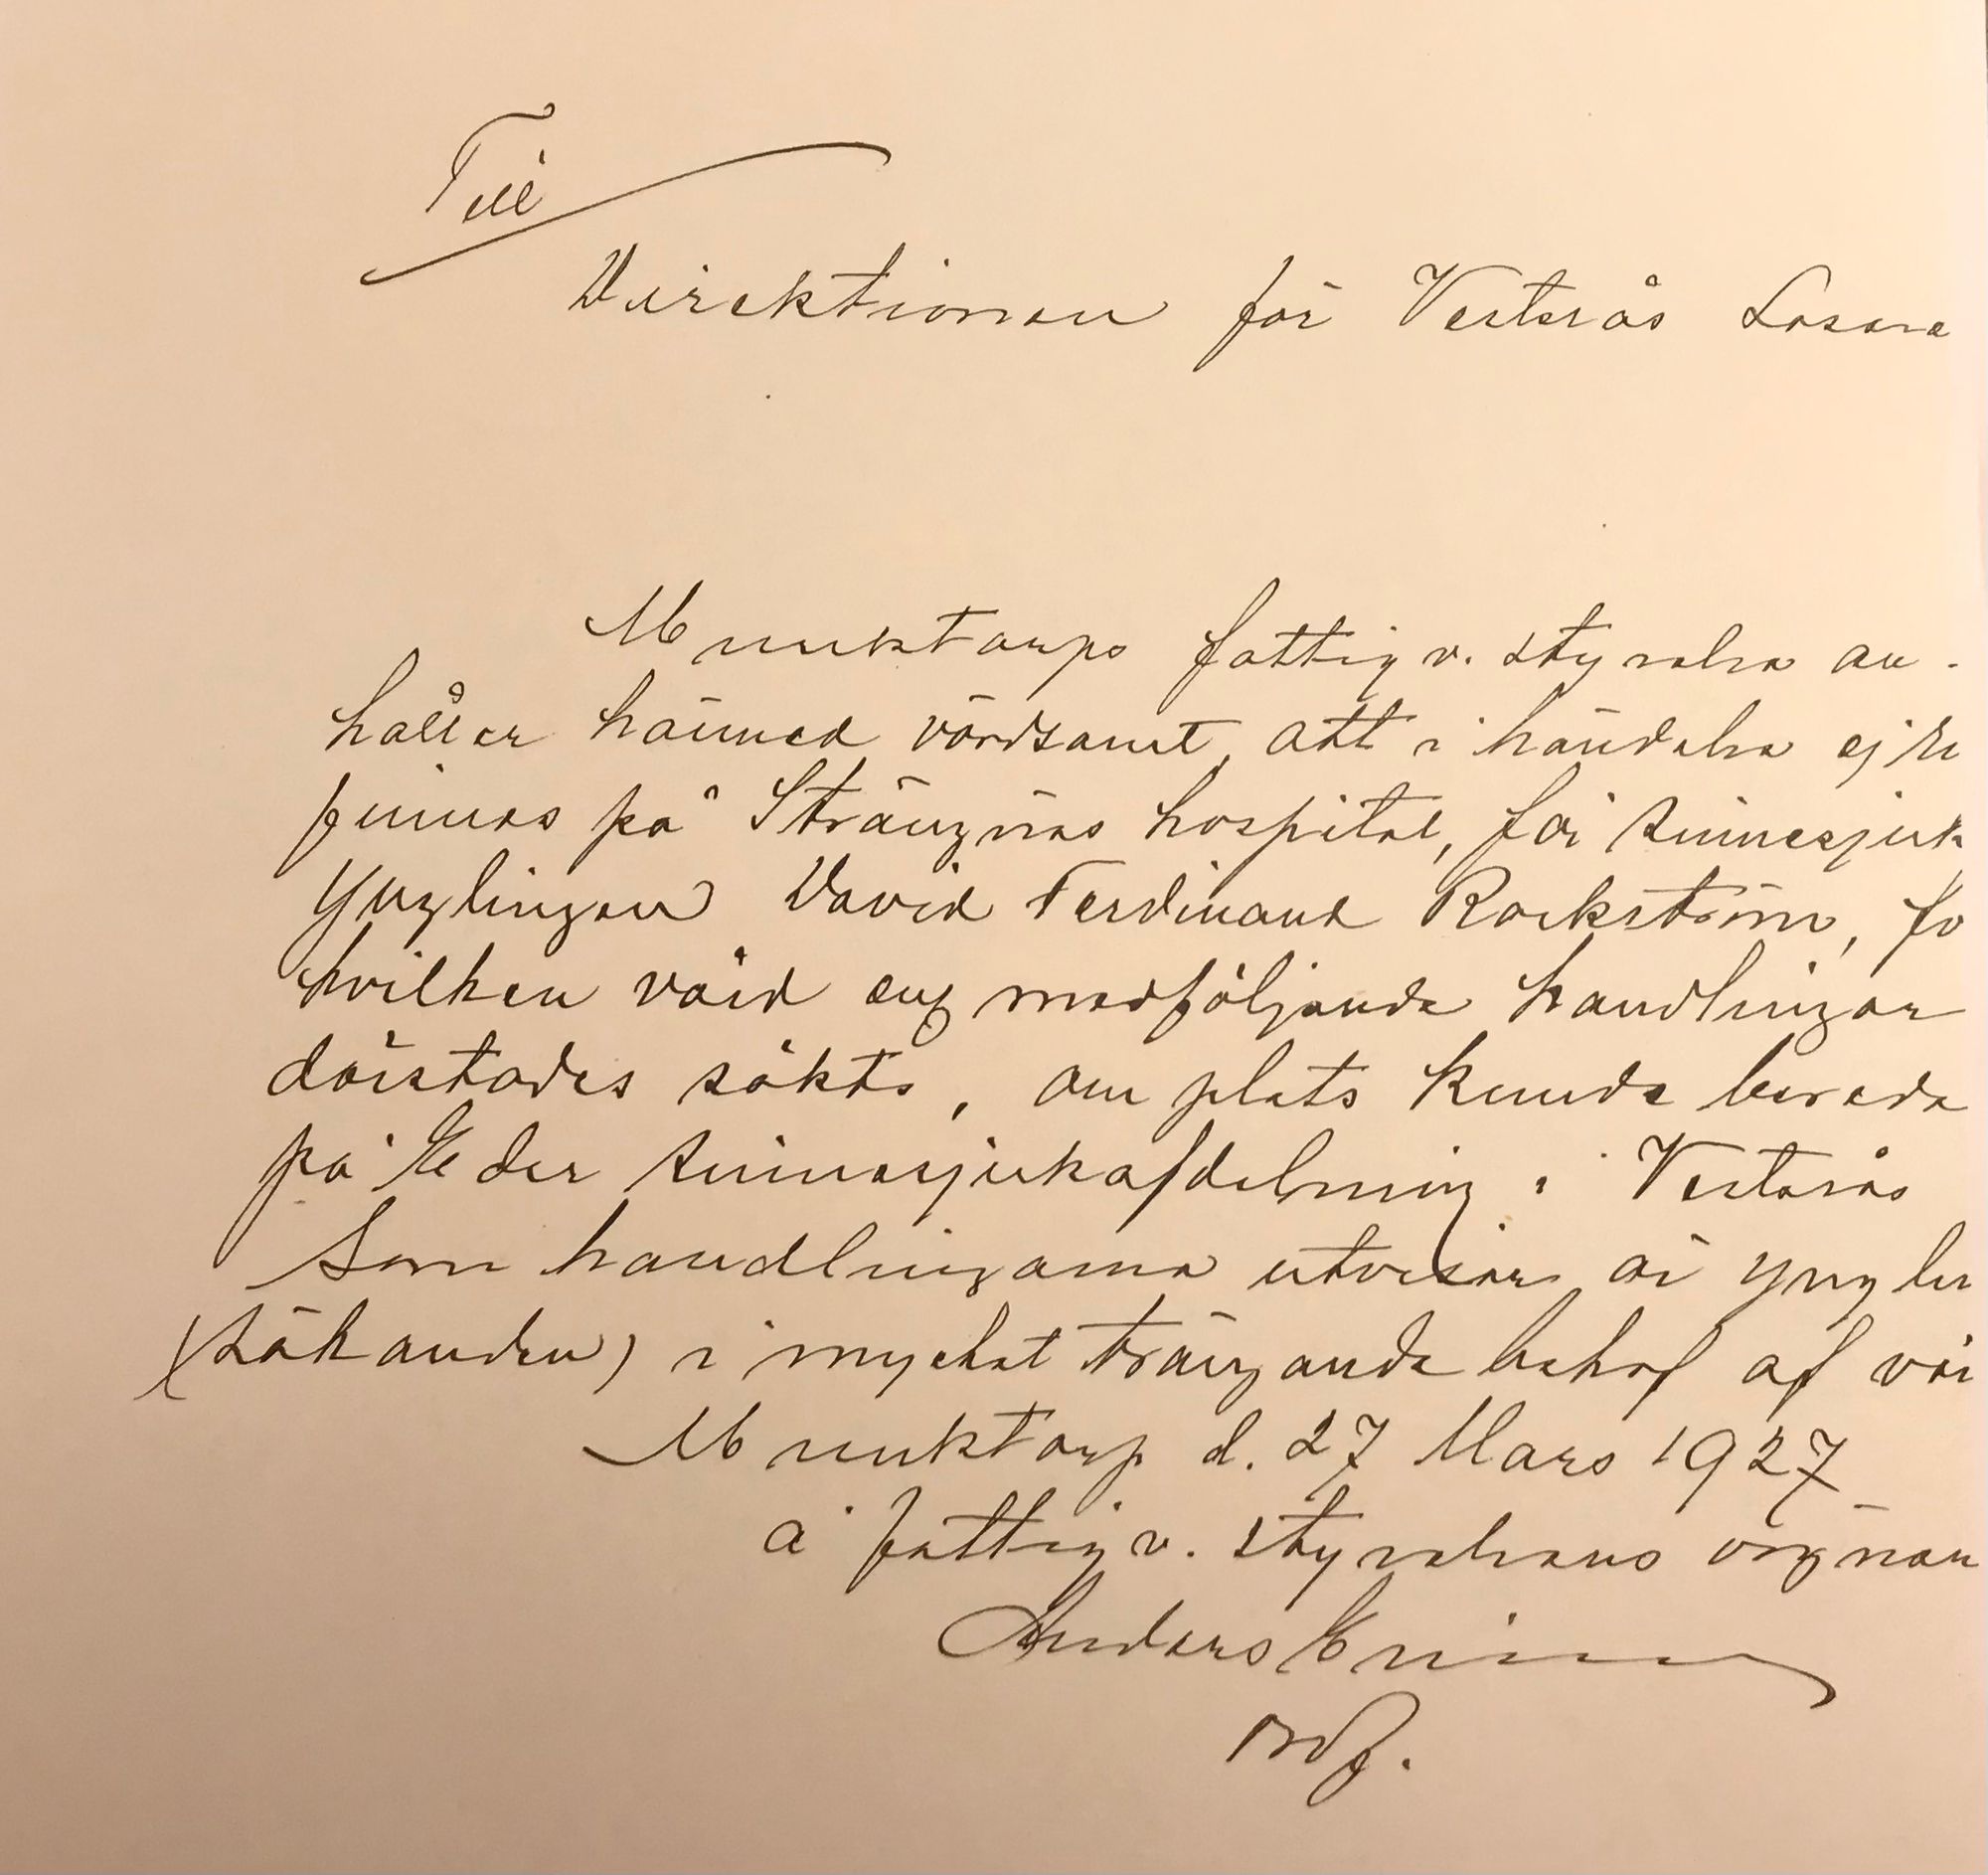 Till
Direktionen för Vesterås Lasare
Munktorps fattigv. styrelse an-
håller härmed vördsamt, att i händelse ej
finnes på Strängnäs hospital, för sinnesjuk
Ynglingen David Ferdinand Rockström, fö
hvilken vård enl medföljande handlingar
därstädes sökts, om plats kunde bereda
på Eder sinnesjukafdelning i Vesterås
Som handlingarna utvisar är yngli
(sökanden) i mycket trängande behof af vår
Munktorp d. 27 Mars 1927
å fattigv. styrelsens vägnar
Anders Ericsson
ordf.